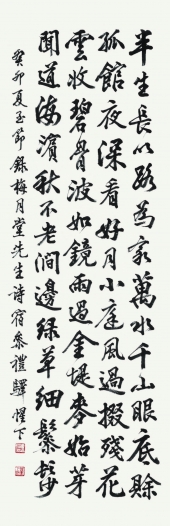 半生長以路為家萬水千山眼底賒
孤館夜深看好月小庭風過掇殘花
雲收碧骨波如鏡雨過金堤麥始芽
聞道海濱秋不老澗邊綠草細鬖髿
癸卯夏至節錄梅月堂先生詩宿參禮驛 惺下